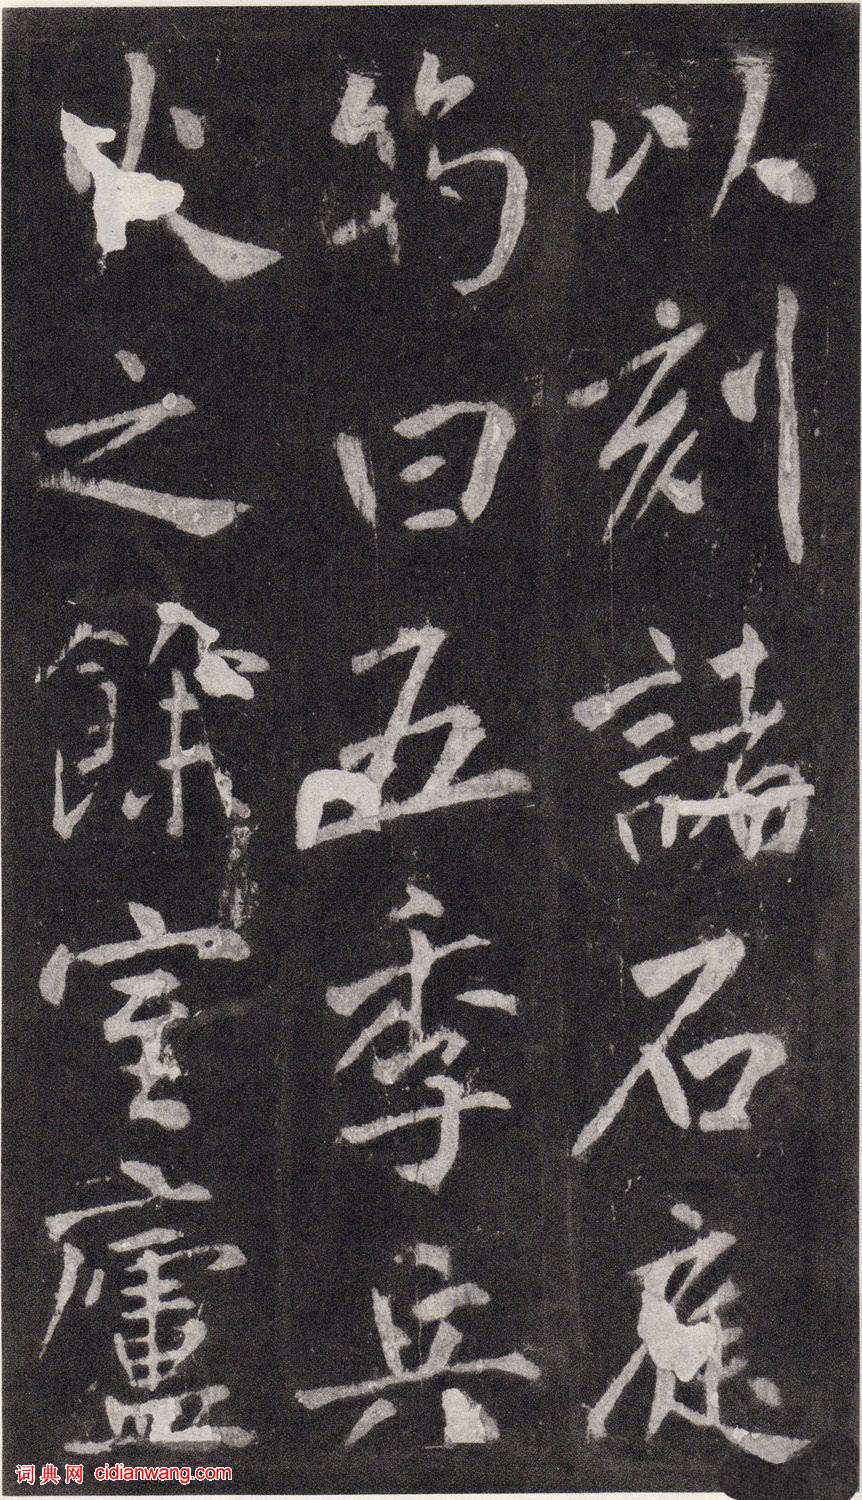 以刻諸石庭
筠曰五季兵
火之餘室廬
词典网 cidianwang.com